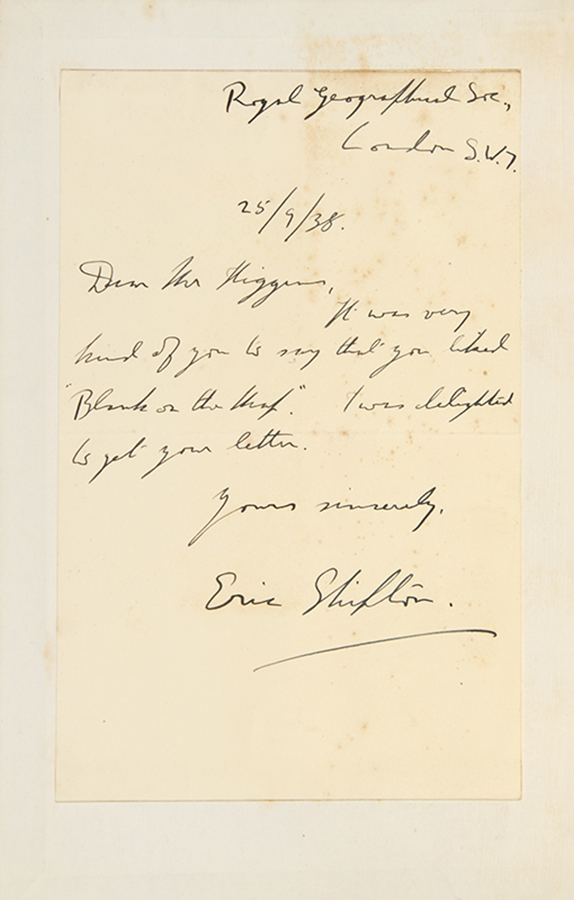 Royal Geographical Soc.,
London S.W.7.
25/9/38.
Dear Mr Higgens,
It was very
kind of you to say that you liked
"Blank on the Map". I was delighted
to get your letter.
Yours sincerely,
Eric Shipton.